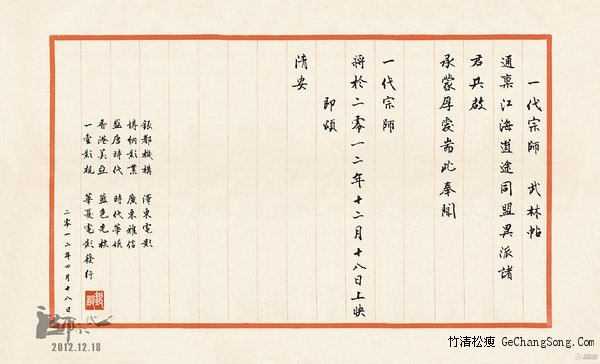 一代宗师 武林帖
通禀江海道途同盟异派諸
君共啟
承蒙厚愛耑此奉聞
一代宗师
將於二零一二年十二月十八日上映
即頌
清安
銀都機構 澤東電影
博納影業 廣東雅信
盛唐時代 時代華娱
香港美亞 藍色光標
一壹影視 華夏電影發行
二零一二年四月十八日
一代宗師
2012.12.18
竹清松瘦 GeChangSong.Com